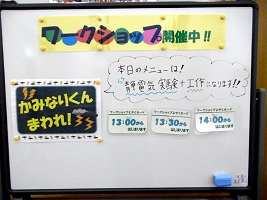 ワークショップ開催中!!
本日のメニューは!
静電気実験+工作になります!!
かみなりくん
まわれ!
ワークショップスタート
13:00から
はじまります
ワークショップスタート
13:30から
はじまります
14:00から
はじまります